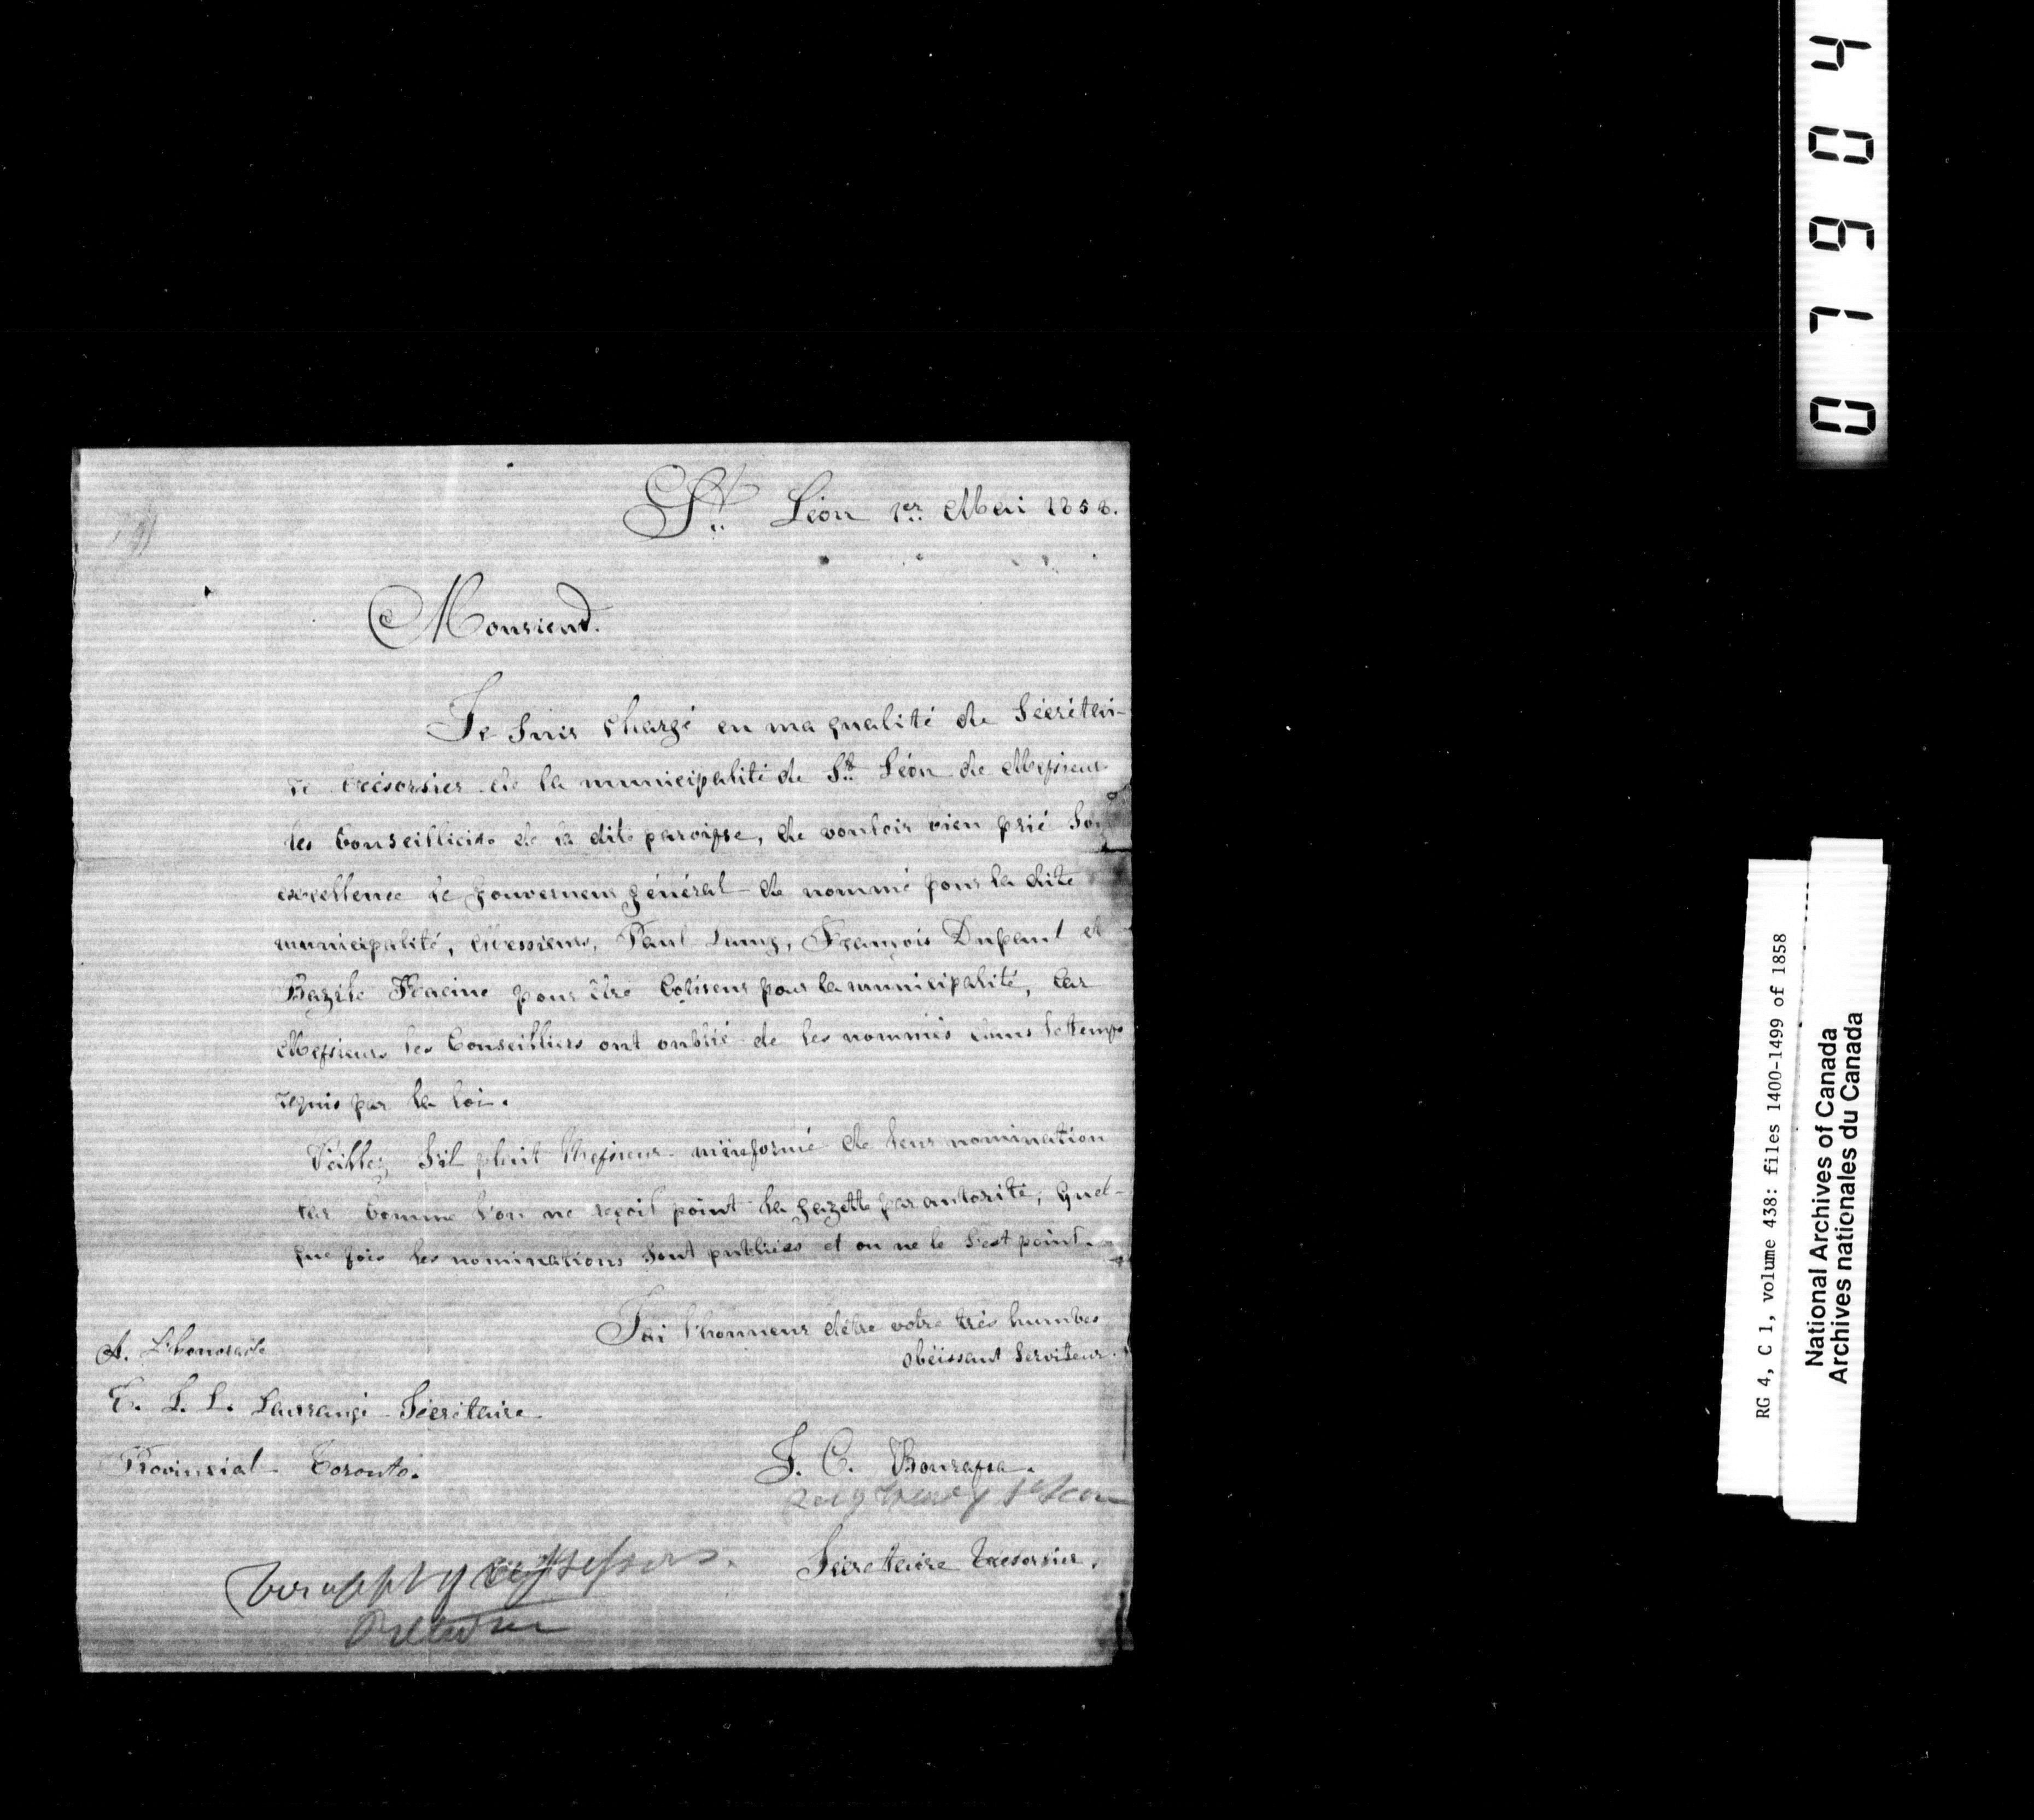 St. Léon 1er Mai 1858.
Monsieur.
Je suis chargé en ma qualité de Sécrétai-
re trésorsier de la municipalité de St. Léon de Messieurs
les Conseilliers de la dite paroisse, de vouloir vien prié Son
excellence le gouverneur général de nommé pour la dite
municipalité, Messieurs, Paul Lamy, François Dupaul et
Bazile Racine pour être Cotiseur pour la municipalité, Car
Messieurs les Conseilliers ont oublié de les nommés dans le temps
requis par la loi.
Véillez S'il plait Messieur m'informé de leur nomination
Car Comme l'on ne reçoit point la gazette par autorité, Quel-
que fois les nominations sont publiées et on ne le s'est point.
J'ai l'honneur d'être votre très humbes
obéissant Serviteur.
A. L'honorable
T. J. L. Laurangé Sécrétaire
Provinsial Toronto.
J. C. Bourassa.
Sécretaire Trésorsier.
Assessors.
07904
RG 4, C 1, volume 438: files 1400-1499 of 1858
National Archives of Canada
Archives nationales du Canada